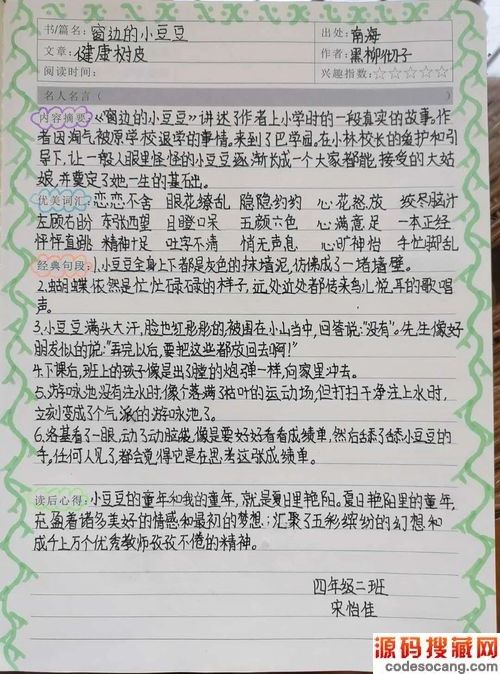 书/篇名：窗边的小豆豆 出处：南海
文章：健康树皮 作者：黑柳彻子
阅读时间： 兴趣指数：☆☆☆☆☆
名人名言（ ）
内容摘要：《窗边的小豆豆》讲述了作者上小学时的一段真实的故事。作
者因淘气被原学校退学的事情。来到了巴学园。在小林校长的维护和引
导下，让一般人眼里怪怪的小豆豆逐渐长成一个大家都能接受的大姑
娘，并奠定了她一生的基石出。
优美词汇：恋恋不舍 眼花缭乱 隐隐约约 心花怒放 绞尽脑汁
左顾右盼 东张西望 目瞪口呆 五颜六色 心满意足 一本正经
怦怦直跳 精神十足 吐字不清 悄无声息 心旷神怡 手忙脚乱
经典句段：1.小豆豆全身上下都是灰色的抹墙泥，仿佛成了一堵墙壁。
2.蝴蝶依然是忙忙碌碌的样子，远处近处都传来鸟儿悦耳的歌唱
声。
3.小豆豆满头大汗，脸也红彤彤的被围在小山当中，回答说："没有"。先生像好
朋友似的说："弄完以后，要把这些都放回去啊！"
4.下课后，班上的孩子像是出了膛的炮弹一样，向家里冲去。
5.游泳池没有注水时，像个落满了枯叶的运动场，但打扫干净注上水时，
立刻变成了个气派的游泳池了。
6.洛基看了一眼，动了动脑袋，像是要好好看看成绩单，然后舔了舔小豆豆的
手。任何人见了都会觉得它是在思考这张成绩单。
读后心得：小豆豆的童年和我的童年，就是夏日里艳阳。夏日艳阳里的童年，
充盈着诸多美好的情感和最初的梦想；汇聚了五彩缤纷的幻想和
成千上万个优秀教师孜孜不倦的精神。
四年级二班
宋怡佳
源码搜藏网
codesocang.com